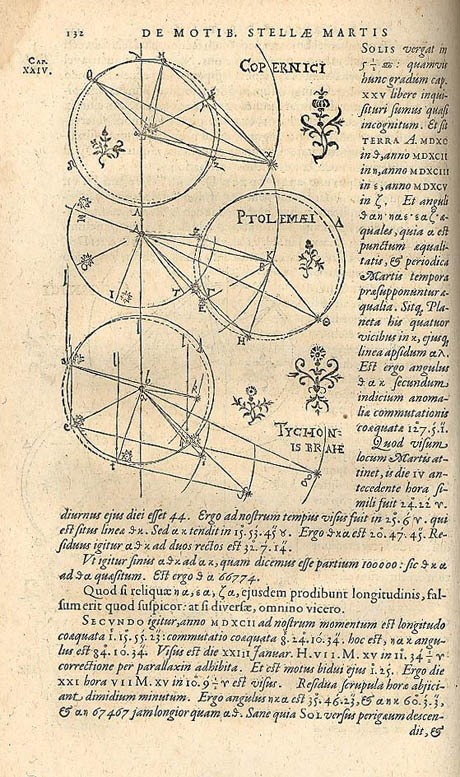 132 DE MOTIB. STELLÆ MARTIS
CAP.
XXIV.
COPERNICI
PTOLEMÆI
TYCHON-
IS BRAHE
SOLIS vergat in
5 1/2 ♒: quamvis
hunc gradum cap.
XXV libere inqui-
situri sumus quasi
incognitum. Et sit
TERRA A. MDXC
in θ, anno MDXCII
in η, anno MDXCIII
in ε, anno MDXCV
in ζ. Et anguli
θαη. ηαε. εαζ æ-
quales, quia α est
punctum æquali-
tatis, & periodica
Martis tempora
præsupponuntur æ-
qualia. Sitq, Pla-
neta his quatuor
vicibus in κ, ejusq,
linea apsidum αλ.
Est ergo angulus
θακ secundum
indicium anoma-
liæ commutationis
coæquatæ 127. 5. 1.
Quod visum
locum Martis at-
tinet, is die IV an-
tecedente hora si-
mili fuit 24. 22 ♈.
diurnus ejus diei esset 44. Ergo ad nostrum tempus visus fuit in 25. 6 ♈. qui
est situs lineæ θκ. Sed ακ tendit in 15. 53. 45 ♉. Ergo θκα est 20. 47. 45. Re-
siduus igitur αθκ ad duos rectos est 32. 7. 14.
Ut igitur sinus αθκ ad ακ, quam dicemus esse partium 100000: sic θκα
ad θα quæsitum. Est ergo θα 66774.
Quod si reliquæ ηα, εα, ζα, ejusdem prodibunt longitudinis, fal-
sum erit quod suspicor: at si diversæ, omnino vicero.
SECUNDO igitur, anno MDXCII ad nostrum momentum est longitudo
coæquata 1. 15. 55. 23: commutatio coæquata 8. 24. 10. 34. hoc est, ηακ angu-
lus est 84. 10. 34. Visus est die XXIII Januar. H. VII. M. XV in 11. 34 1/2 ♈
correctione per parallaxin adhibita. Et est motus bidui ejus 1. 25. Ergo die
XXI hora VII M. XV in 10. 9 1/2 ♈ est visus. Residua scrupula horæ abjici-
ant dimidium minutum. Ergo angulus ηκα est 35. 46. 23, & αηκ 60. 3. 3,
& αη 67467 jam longior quam αθ. Sane quia SOL versus perigæum descen-
dit, &